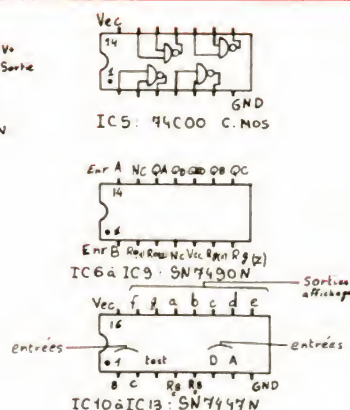 V+
Sortie
Vec
14
1
GND
IC5: 74C00 C.MOS
Enr A NC QA QD GND QB QC
14
Enr B R0(1) R0(2) NC Vec R9(1) R9(2)
IC6 à IC9: SN7490N
Sorties
affichage
Vec f g a b c d e
16
entrées
1 test D A
entrées
B C RB RB GND
IC10 à IC13: SN7447N